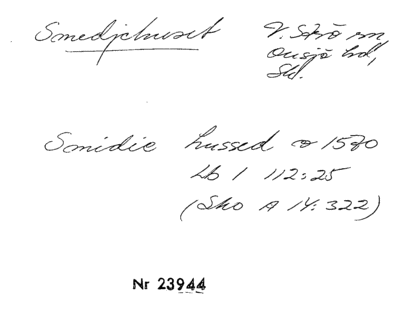 Smedjehuset V. Strö sn,
Onsjö hd,
Sk.
Smidie hussed ∞ 1570
Lb 1 112:25
(Sko A 14:322)
Nr 23944